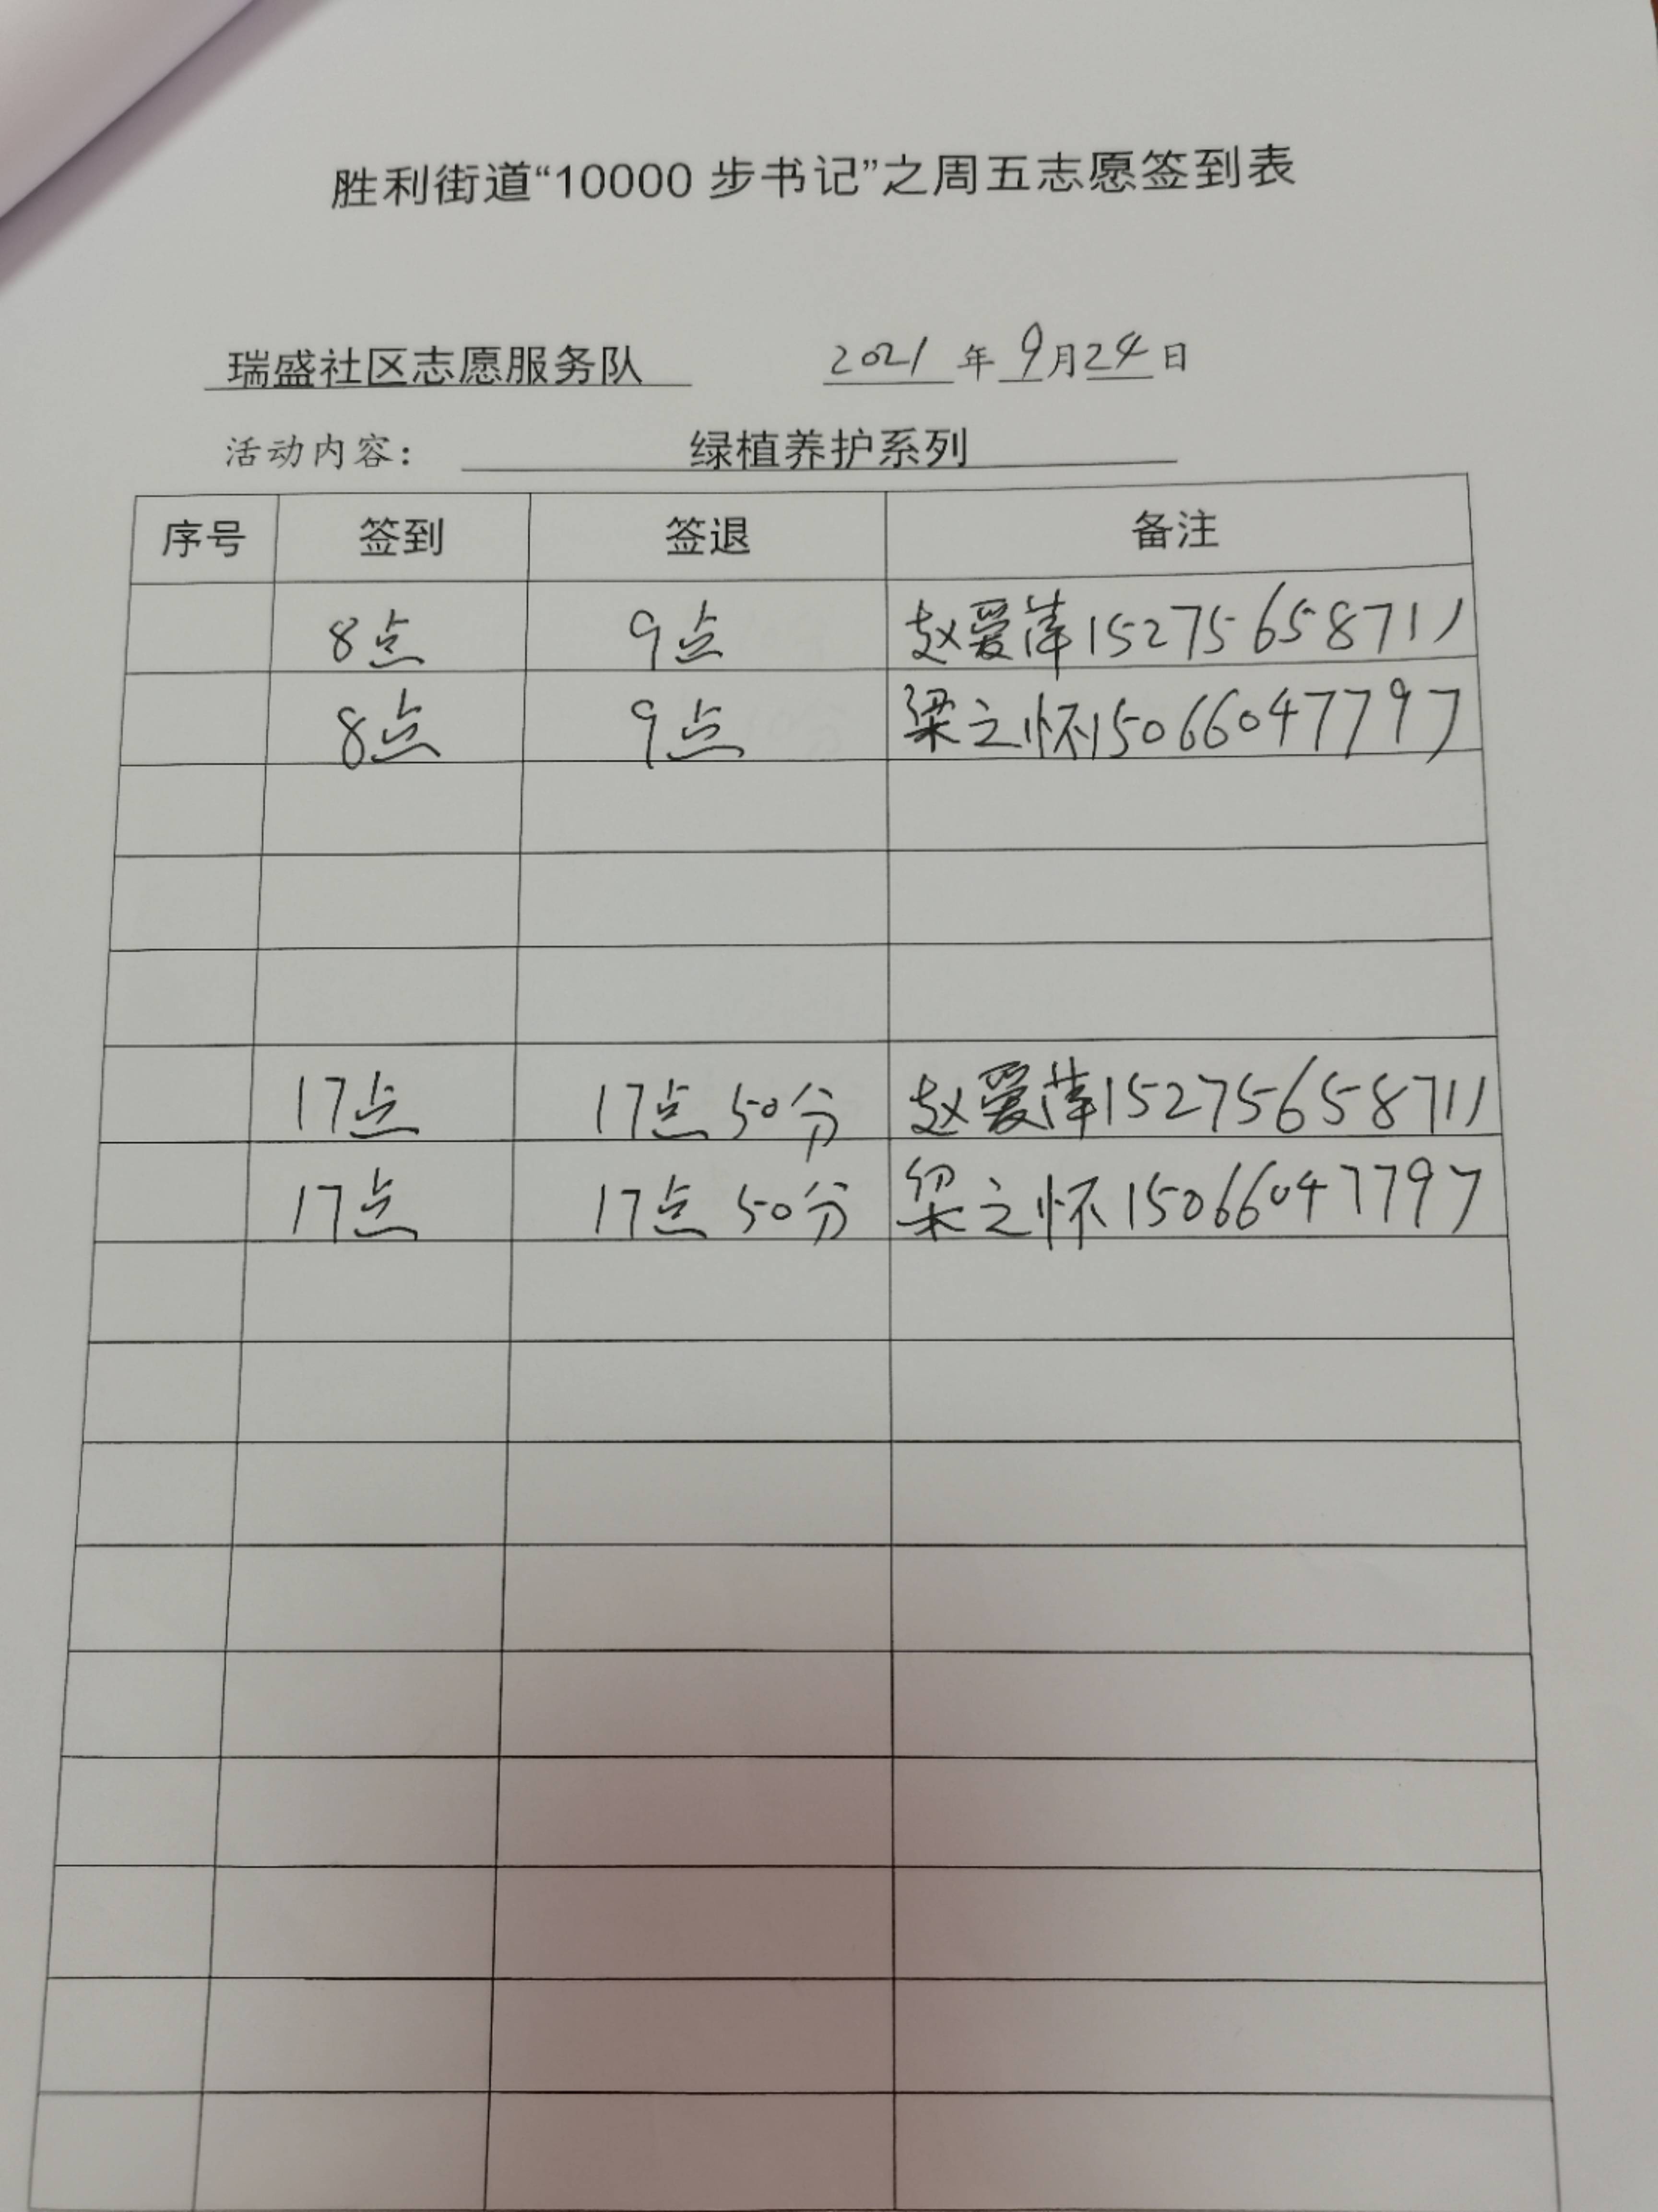 胜利街道“10000 步书记”之周五志愿签到表
瑞盛社区志愿服务队 2021 年 9月24日
活动内容： 绿植养护系列
序号 签到 签退 备注
8点 9点 赵爱萍15275658711
8点 9点 梁之怀15066047797
17点 17点50分 赵爱萍15275658711
17点 17点50分 梁之怀15066047797